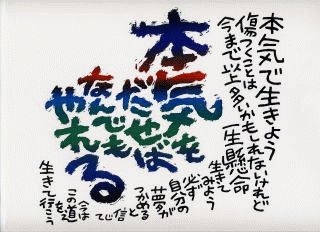 本気で生きよう
傷つくことは
今まで以上多いかもしれないけれど
一生懸命
生きて
みよう
必ず
自分の
夢が
つかめる
と
信じて
今は
この道
を
生きて行こう
本気を
だせば
なんでも
やれる